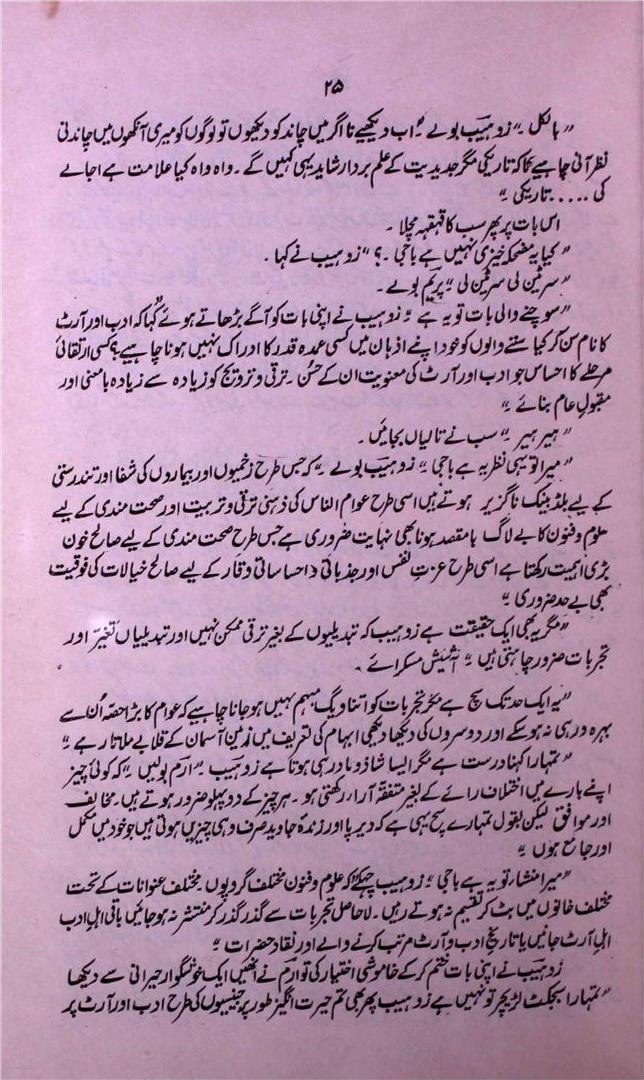 ۲۵
”بالکل۔“ زوہیب بولے ”اب دیکھیے نا اگر میں چاند کو دیکھوں تو لوگوں کو میری آنکھوں میں چاندنی
نظر آنی چاہیے نہ کہ تاریکی مگر جدیدیت کے علم بردار شاید یہی کہیں گے۔ واہ واہ کیا علامت ہے اجالے
کی ..... تاریکی۔“
اس بات پر پھر سب کا قہقہہ مچلا۔
”کیا یہ مضحکہ خیزی نہیں ہے باجی۔؟“ زوہیب نے کہا۔
”سرٹین لی سرٹین لی“ پریم بولے۔
”سوچنے والی بات تو یہ ہے“ زوہیب نے اپنی بات کو آگے بڑھاتے ہوئے کہا ”کہ ادب اور آرٹ
کا نام سن کر کیا سننے والوں کو خود اپنے اذہان میں کسی عمدہ قدر کا ادراک نہیں ہونا چاہیے؟ کسی ارتقائی
مرحلے کا احساس جو ادب اور آرٹ کی معنویت ان کے حسُن۔ ترقی و ترویج کو زیادہ سے زیادہ بامعنی اور
مقبولِ عام بنائے۔“
”ہیر ہیر“ سب نے تالیاں بجائیں۔
”میرا تو یہی نظریہ ہے باجی“ زوہیب بولے۔ ”کہ جس طرح زخمیوں اور بیماروں کی شفا اور تندرستی
کے لیے بلڈ بینک ناگزیر ہوتے ہیں اسی طرح عوام الناس کی ذہنی ترقی و تربیت اور صحت مندی کے لیے
علوم و فنون کا بے لاگ بامقصد ہونا بھی نہایت ضروری ہے جس طرح صحت مندی کے لیے صالح خون
بڑی اہمیت رکھتا ہے اسی طرح عزتِ نفس اور جذباتی و احساساتی وقار کے لیے صالح خیالات کی فوقیت
بھی بے حد ضروری۔“
”مگر یہ بھی ایک حقیقت ہے زوہیب کہ تبدیلیوں کے بغیر ترقی ممکن نہیں اور تبدیلیاں تغیّر اور
تجربات ضرور چاہتی ہیں“ آشیش مسکرائے۔
”یہ ایک حد تک سچ ہے مگر تجربات کو اتنا ویگ مبہم نہیں ہو جانا چاہیے کہ عوام کا بڑا حصّہ اُن سے
بہرہ ور ہی نہ ہو سکے اور دوسروں کی دیکھا دیکھی ابہام کی تعریف میں زمین آسمان کے قلابے ملاتا رہے۔“
”تمہارا کہنا درست ہے مگر ایسا شاذ و نادر ہی ہوتا ہے زوہیب۔“ ارم بولیں۔ ”کہ کوئی چیز
اپنے بارے میں اختلاف رائے کے بغیر متفقہ آراء رکھتی ہو۔ ہر چیز کے دو پہلو ضرور ہوتے ہیں۔ مخالف
اور موافق لیکن بقول تمہارے سچ یہی ہے کہ دیرپا اور زندۂ جاوید صرف وہی چیزیں ہوتی ہیں جو خود میں مکمل
اور جامع ہوں۔“
”میرا منشاء تو یہ ہے باجی“ زوہیب چہکے ”کہ علوم و فنون مختلف گروپوں۔ مختلف عنوانات کے تحت
مختلف خانوں میں بٹ کر تقسیم نہ ہوتے رہیں۔ لاحاصل تجربات سے گذر گذر کر منتشر نہ ہو جائیں باقی اہلِ ادب
اہلِ آرٹ جانیں یا تاریخِ ادب و آرٹ مرتب کرنے والے اور نقاد حضرات“
زوہیب نے اپنی بات ختم کر کے خاموشی اختیار کی تو ارم نے انھیں ایک خوشگوار حیرانی سے دیکھا
”تمہارا سبجکٹ لڑیچر تو نہیں ہے زوہیب پھر بھی تم حیرت انگیز طور پر جینیسوں کی طرح ادب اور آرٹ پر